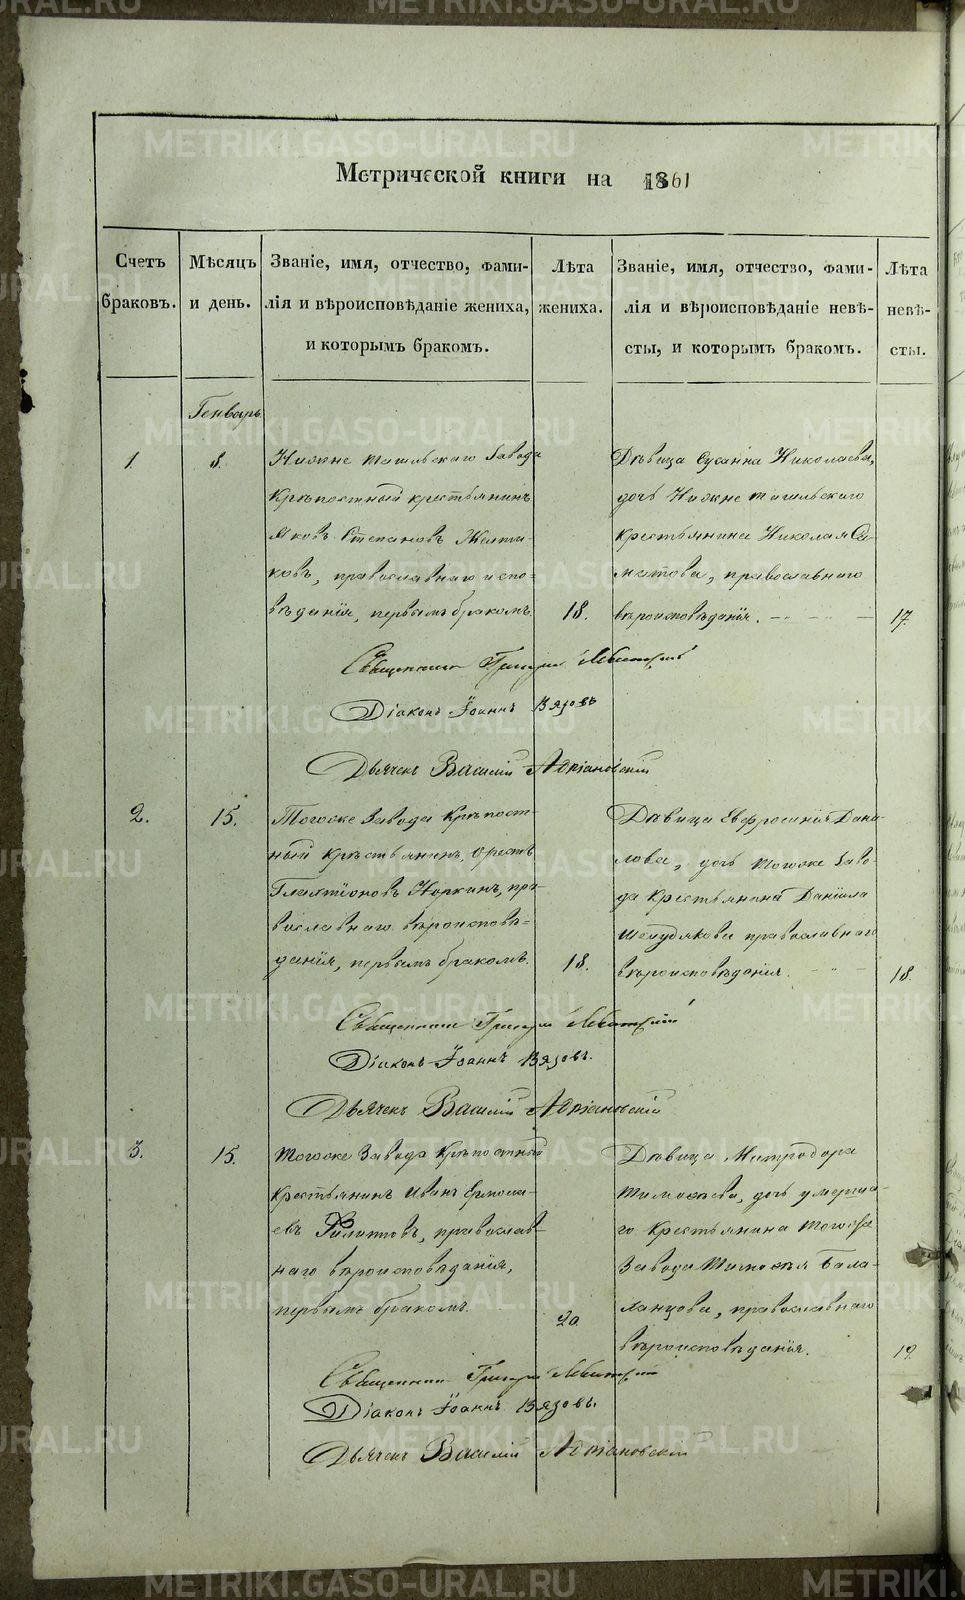 METRIKI.GASO-URAL.RU
Метрической книги на 1861
Счетъ браковъ.
Мѣсяцъ и день.
Званіе, имя, отчество, фами-
лія и вѣроисповѣданіе жениха,
и которымъ бракомъ.
Лѣта
жениха.
Званіе, имя, отчество, фами-
лія и вѣроисповѣданіе невѣ-
сты, и которымъ бракомъ.
Лѣта
невѣ-
сты.
Генварь
1.
8.
Нижне Тагильскаго Завода
крѣпостный крестьянинъ
Яковъ Степановъ
ковъ, православнаго испо-
вѣданія, первымъ бракомъ.
18.
Дѣвица Сусанна Николаева,
дочь Нижне Тагильскаго
крестьянина Николая
православнаго
вѣроисповѣданія.
17.
Священникъ Григорій
Діаконъ Іоаннъ Вязовъ
Дьячекъ Василій Адріановскій
2.
15.
Тогоже Завода крѣпост-
ный крестьянинъ, Орестъ
Платоновъ Норкинъ, пра
вославнаго вѣроисповѣ-
данія, первымъ бракомъ.
18.
Дѣвица Евфросинія Дани-
лова, дочь тогоже Заво-
да крестьянина Даніила
Шелудякова православнаго
вѣроисповѣданія.
18.
Священникъ Григорій
Діаконъ Іоаннъ Вязовъ.
Дьячекъ Василій Адріановскій
3.
15.
Тогоже Завода крѣпостный
крестьянинъ Иванъ Ермола-
евъ Филиповъ, православ-
наго вѣроисповѣданія,
первымъ бракомъ.
20.
Дѣвица Митродора
Тимофеева, дочь умерша-
го крестьянина тогоже
Завода Тимофея Бала-
ланцова, православнаго
вѣроисповѣданія.
19.
Священникъ Григорій
Діаконъ Іоаннъ Вязовъ.
Дьячекъ Василій Адріановскій